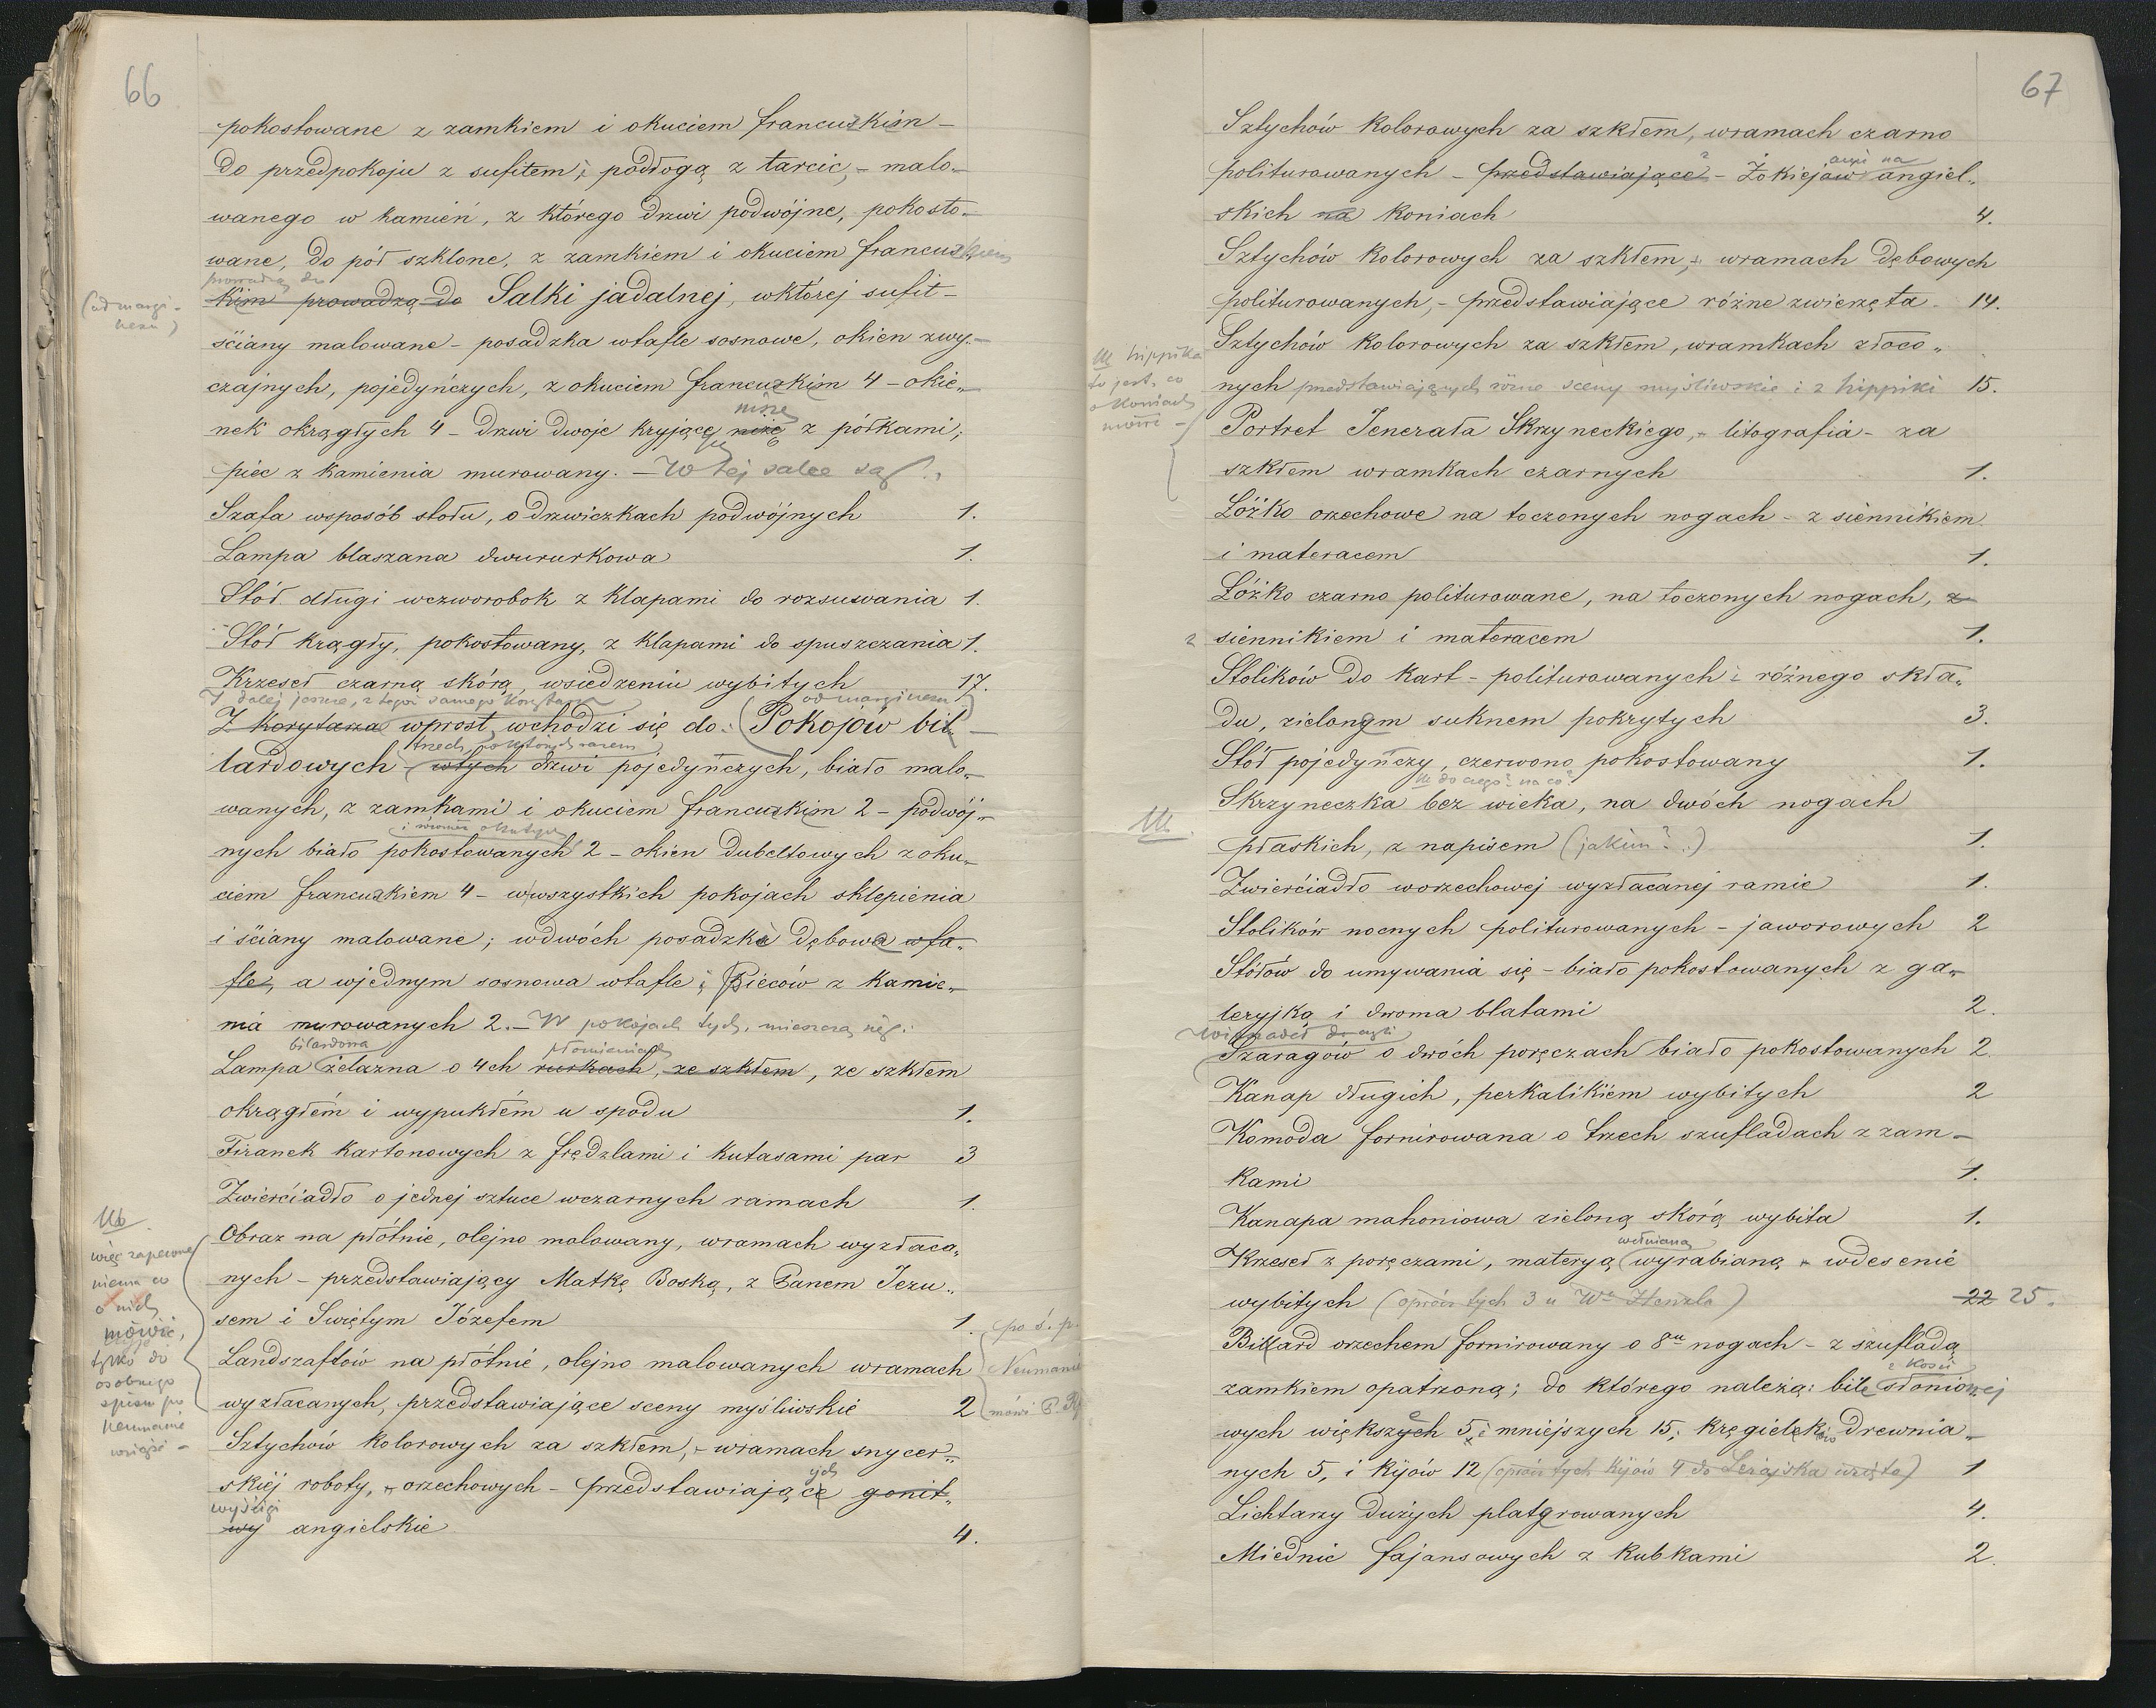 66
pokostowane z zamkiem i okuciem francuzkim –
do przedpokoju z sufitem i podłogą z tarcic, – malo-
wanego w kamień, z którego drzwi podwójne, pokosto-
wane, do pół szklone, z zamkiem i okuciem francuz
prowadzą do
(od margi-
nesu)
kim prowadzą do Salki jadalnej, wktórej sufit –
ściany malowane – posadzka wtafle sosnowe, okien zwy-
czajnych, pojedyńczych, z okuciem francuzkim 4 – okie-
nisze
nek okrągłych 4 – drzwi dwoje kryjące niże z półkami;
piec z kamienia murowany. – W tej salce są:
Szafa wsposób stołu, o drzwiczkach podwójnych 1.
Lampa blaszana dwururkowa 1.
Stół długi wczworobok z klapami do rozsuwania 1.
Stół krągły, pokostowany, z klapami do spuszczania 1.
Krzeseł czarną skórą, wsiedzeniu wybitych 17.
I dalej jeszcze, z tegoż samego Korytarza
od marginesu
Z korytarza wprost wchodzi się do: Pokojów bil-
trzech, po których razem
lardowych – wtych drzwi pojedyńczych, biało malo-
wanych, z zamkami i okuciem francuzkim 2 – podwój-
i również okutych
nych biało pokostowanych 2 – okien dubeltowych z oku-
ciem francuzkiem 4 – wwszystkich pokojach sklepienia
i ściany malowane; wdwóch posadzka dębowa wta-
fle, a wjednym sosnowa wtafle; Pieców z kamie-
nia murowanych 2. – W pokojach tych, mieszczą się:
bilardowa
płomieniach
Lampa żelazna o 4ch rurkach, ze szkłem, ze szkłem
okrągłém i wypukłém u spodu 1.
Firanek kartonowych z frędzlami i kutasami par 3
Zwierciadło o jednej sztuce wczarnych ramach 1.
Nb
więc zapewne
niema co
o nich
mówić,
tylko do
osobnego
spisu po
Neumanie
wciąść –
Obraz na płótnie, olejno malowany, wramach wyzłaca-
nych – przedstawiający Matkę Boską, z Panem Jezu-
sem i Świętym Józefem 1.
po ś. p.
Neumanie
mówi P.
Landszaftów na płótnie, olejno malowanych wramach
wyzłacanych, przedstawiające sceny myśliwskie 2
Sztychów kolorowych za szkłem, – wramach snycer-
ych
skiéj roboty, – orzechowych – przedstawiające gonit-
wyścigi
wy angielskie 4.
67
Sztychów kolorowych za szkłem, wramach czarno
politurowanych – przedstawiające – Żokiejów angiel-
skich na koniach 4.
Sztychów kolorowych za szkłem, – wramach dębowych
politurowanych, – przedstawiające różne zwierzęta – 14.
Sztychów kolorowych za szkłem, wramkach złoco-
Nb hippika
to jest, co
o koniach
mówi –
nych przedstawiających różne sceny myśliwskie i z hippiki 15.
Portret Jenerała Skrzyneckiego, – litografia – za
szkłem wramkach czarnych 1.
Łóżko orzechowe na toczonych nogach – z siennikiem
i materacem 1.
Łóżko czarno politurowane, na toczonych nogach, z
z siennikiem i materacem 1.
Stolików do kart – politurowanych – różnego skła-
du, zielonem suknem pokrytych 3.
Stół pojedyńczy, czerwono pokostowany 1.
Nb do czego? na co?
Skrzyneczka bez wieka, na dwóch nogach
Nb.
płaskich, z napisem (jakim?..) 1.
Zwierciadło worzechowej wyzłacanej ramie 1.
Stolików nocnych politurowanych – jaworowych 2
Stołów do umywania się – biało pokostowanych z ga-
leryjką i dwoma blatami 2.
Wieszadeł do
Szaragów o dwóch poręczach biało pokostowanych 2.
Kanap długich, perkalikiem wybitych 2
Komoda fornirowana o trzech szufladach z zam-
kami 1.
Kanapa mahoniowa zieloną skórą wybita 1.
wełnianą
Krzeseł z poręczami, materyą wyrabianą – wdesenie
wybitych (oprócz tych 3 u Wo Henzla) 22 25.
Billard orzechem fornirowany o 8u nogach – z szufladą
z kości
zamkiem opatrzoną; do którego należą: bile słoniowej
wych większych 5, i mniejszych 15, kręgielek drewnia-
nych 5, i Kijów 12 (oprócz tych Kijów 4 do Leżajska wzięto) 1
Lichtarzy dużych platerowanych 4.
Miednic fajansowych z kubkami 2.